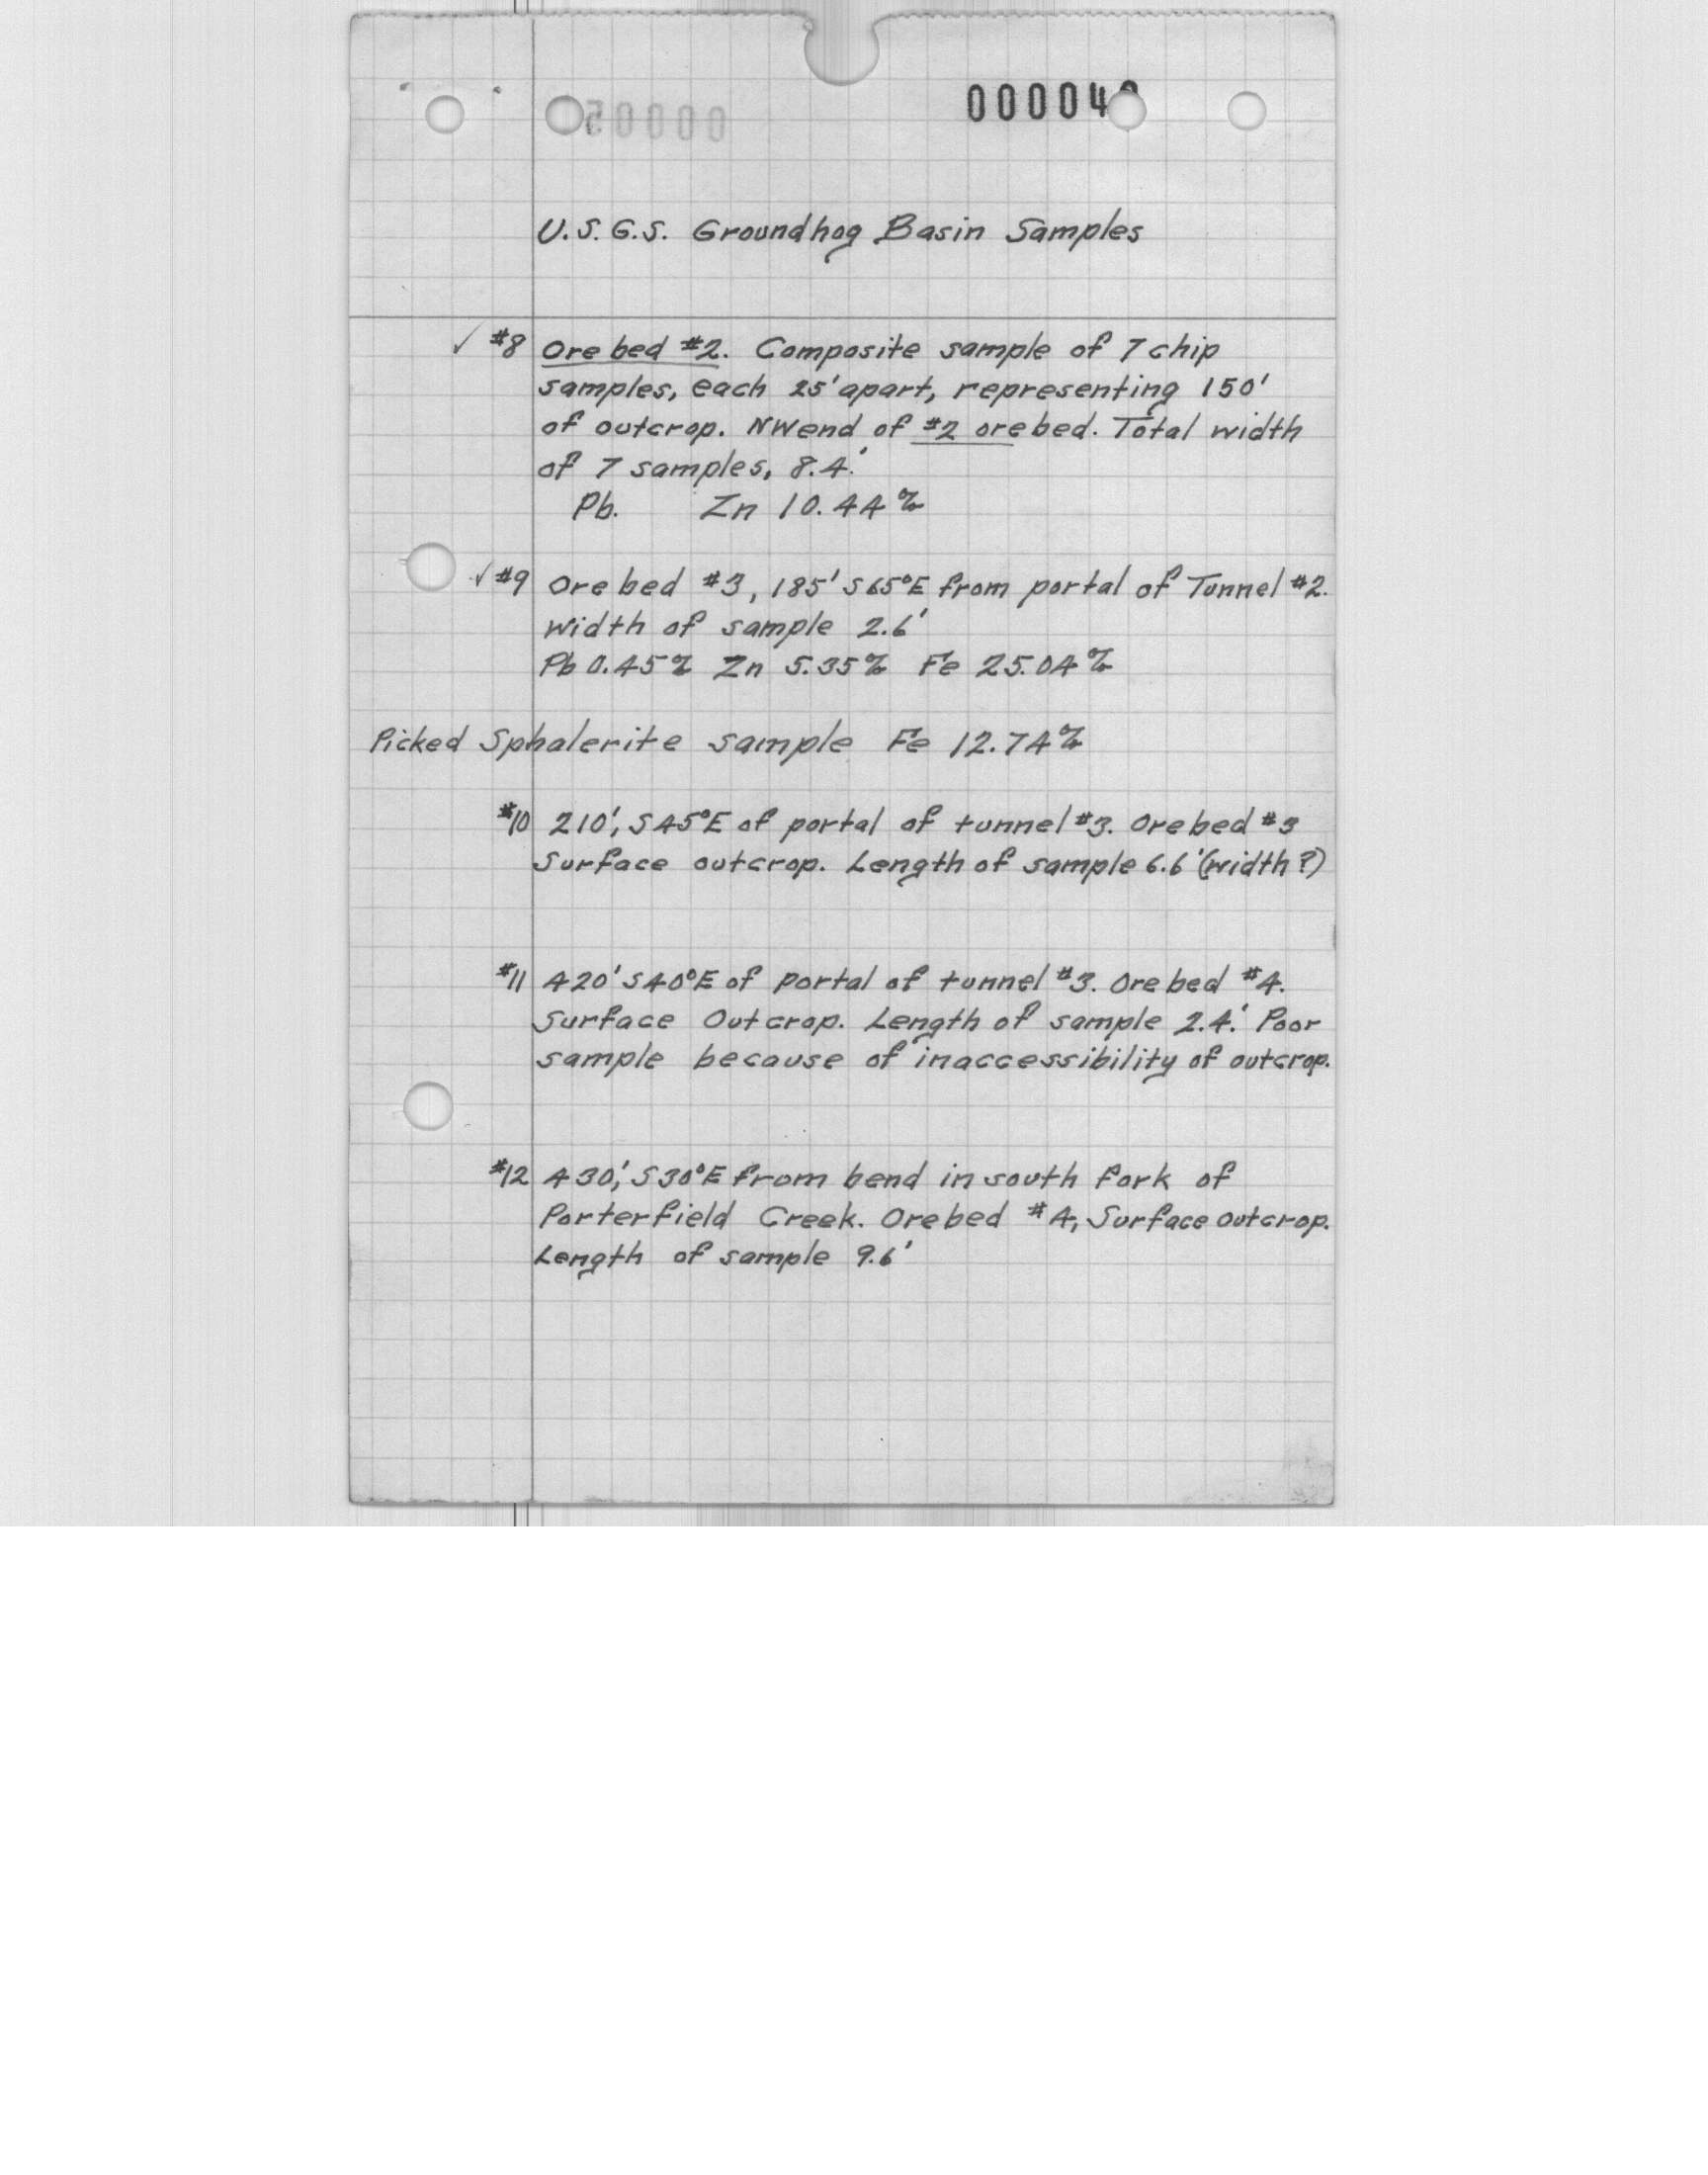 U.S.G.S. Groundhog Basin Samples
✓ #8 Ore bed #2. Composite sample of 7 chip
samples, each 25' apart, representing 150'
of outcrop. NW end of #2 ore bed. Total width
of 7 samples, 8.4.'
Pb. Zn 10.44%
✓ #9 Ore bed #3, 185' S65°E from portal of Tunnel #2.
Width of sample 2.6'
Pb 0.45% Zn 5.35% Fe 25.04%
Picked Sphalerite sample Fe 12.74%
#10 210', S45°E of portal of tunnel #3. Ore bed #3
Surface outcrop. Length of sample 6.6' (width?)
#11 420' S40°E of portal of tunnel #3. Ore bed #4.
Surface Outcrop. Length of sample 2.4.' Poor
sample because of inaccessibility of outcrop.
#12 430', S30°E from bend in south fork of
Porterfield Creek. Ore bed #4, Surface outcrop.
Length of sample 9.6'